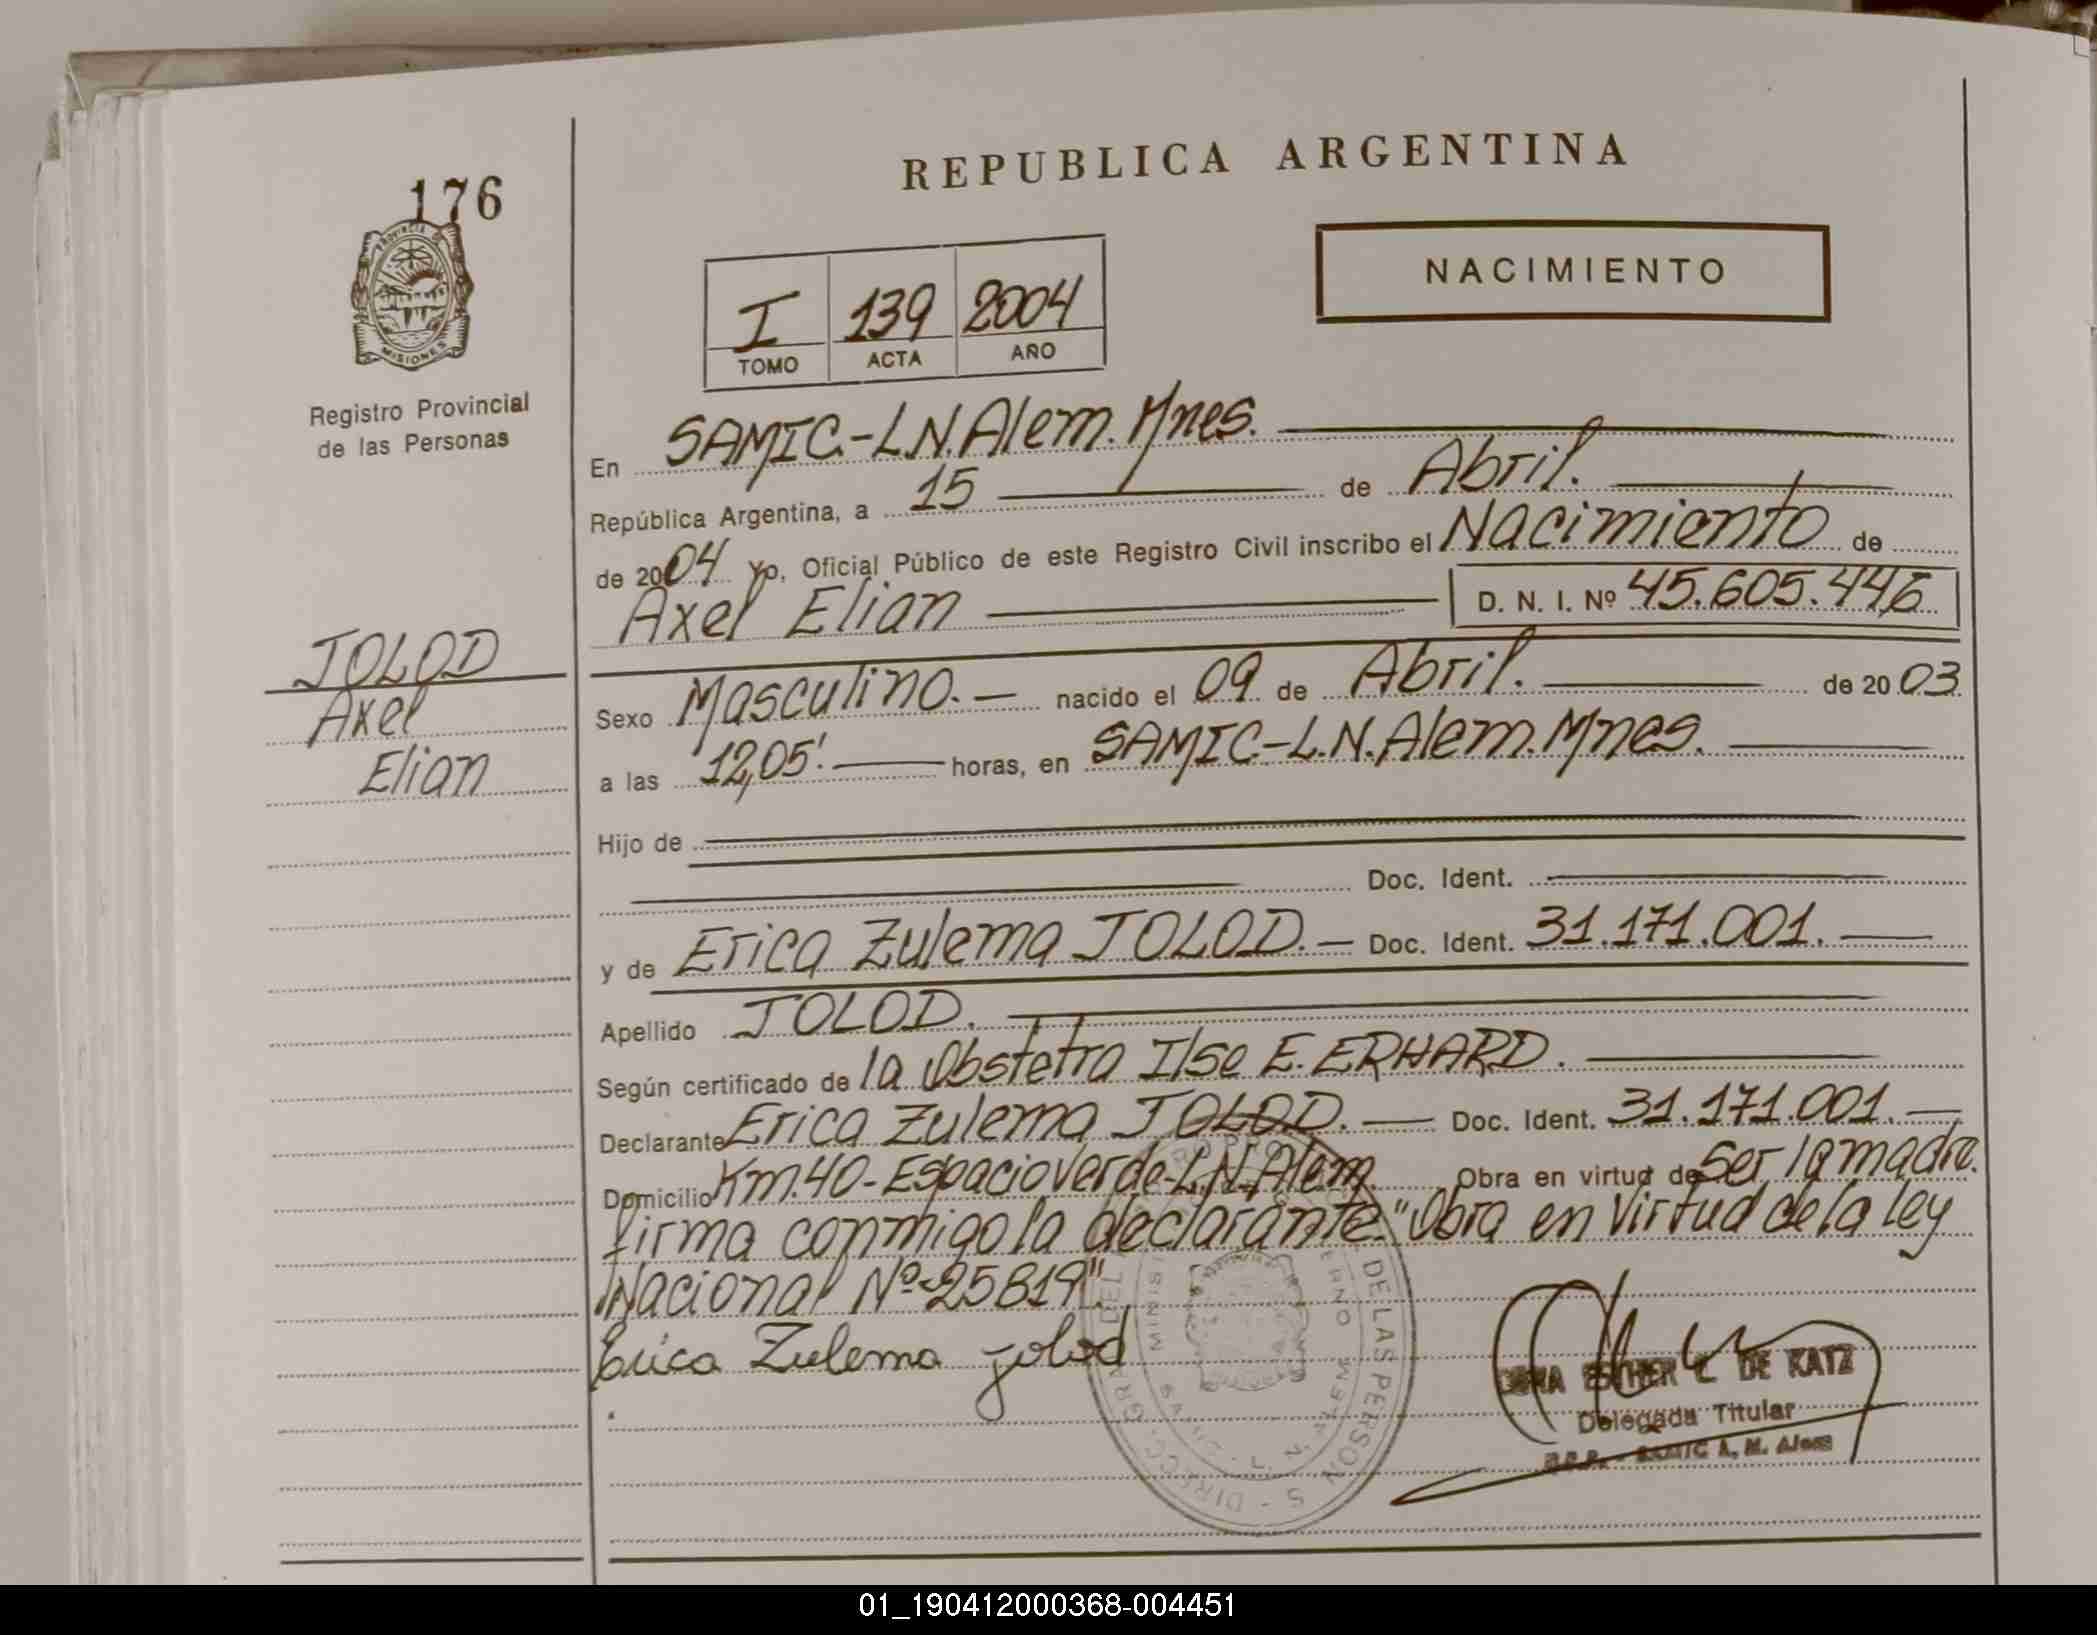 REPUBLICA ARGENTINA
176
PROVINCIA DE
MISIONES
Registro Provincial
de las Personas
NACIMIENTO
I 139 2004
TOMO ACTA AÑO
En SAMIC.-L.N.Alem.Mnes.
República Argentina, a 15 de Abril.
de 2004 Yo, Oficial Público de este Registro Civil inscribo el Nacimiento de
Axel Elian D. N. I. Nº 45.605.446
JOLOD
Axel
Elian
Sexo Masculino.- nacido el 09 de Abril. de 2003
a las 12,05' horas, en SAMIC-L.N.Alem.Mnes.
Hijo de
Doc. Ident.
y de Erica Zulema JOLOD.- Doc. Ident. 31.171.001.
Apellido JOLOD.
Según certificado de la Obstetra Ilse E. ERHARD.
Declarante Erica Zulema JOLOD.- Doc. Ident. 31.171.001.-
Domicilio Km.40-Espacio Verde-L.N.Alem. Obra en virtud de Ser la madre.
firma conmigo la declarante."Obra en Virtud de la Ley
Nacional Nº 25819".
Erica Zulema Jolod
DE LAS PERSON S - DIRECC. GRAL DEL
ESTHER L. DE KATZ
Delegada Titular
SAMIC A. M. Alem
01_190412000368-004451